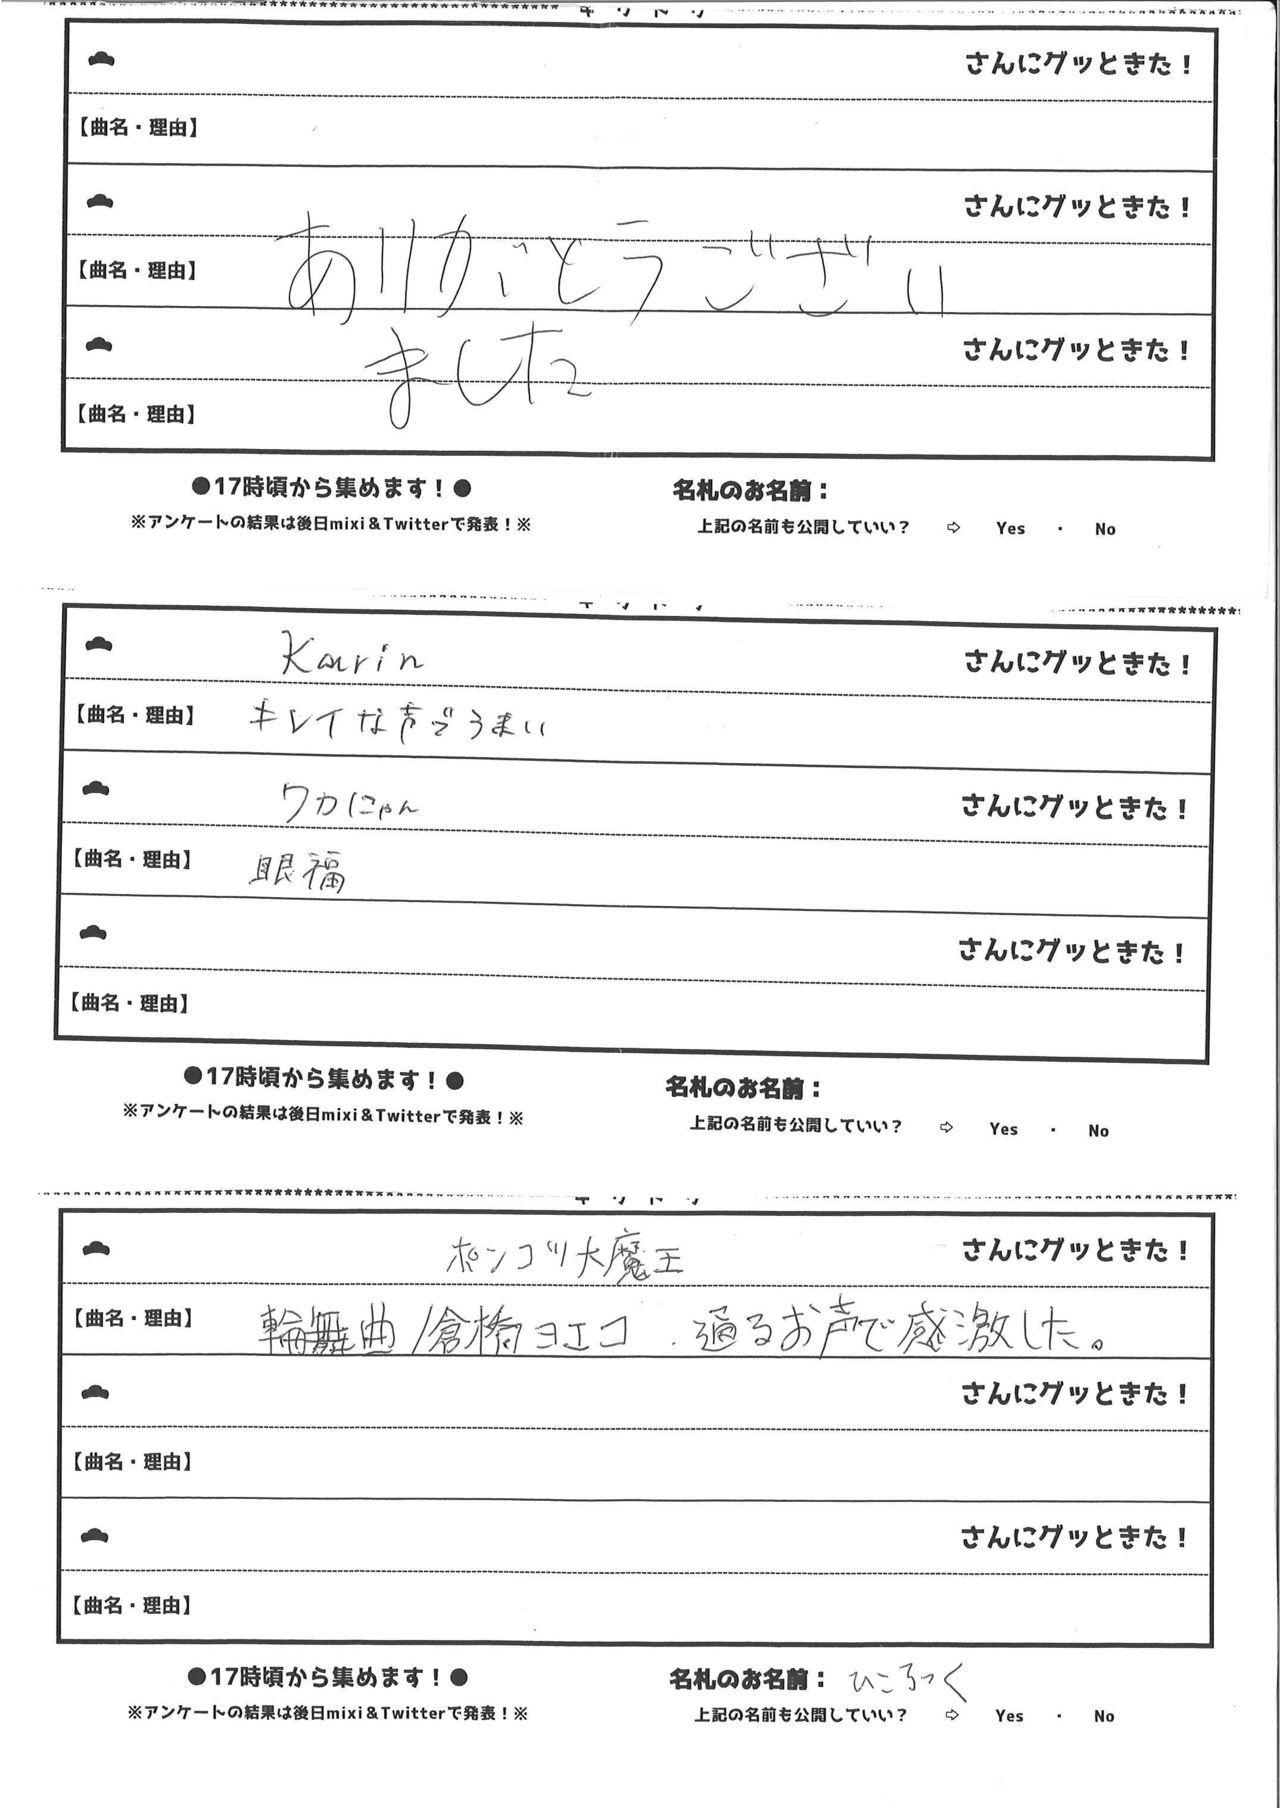 キリトリ
さんにグッときた！
【曲名・理由】
さんにグッときた！
【曲名・理由】
ありがとうござい
ました
さんにグッときた！
【曲名・理由】
●17時頃から集めます！●
名札のお名前：
※アンケートの結果は後日mixi＆Twitterで発表！※
上記の名前も公開していい？ ⇨ Yes ・ No
キリトリ
Karin さんにグッときた！
【曲名・理由】 キレイな声でうまい
ワカにゃん さんにグッときた！
【曲名・理由】 眼福
さんにグッときた！
【曲名・理由】
●17時頃から集めます！●
名札のお名前：
※アンケートの結果は後日mixi＆Twitterで発表！※
上記の名前も公開していい？ ⇨ Yes ・ No
キリトリ
ポンコツ大魔王 さんにグッときた！
【曲名・理由】 輪舞曲/倉橋ヨエコ．通るお声で感激した。
さんにグッときた！
【曲名・理由】
さんにグッときた！
【曲名・理由】
●17時頃から集めます！●
名札のお名前：ひころっく
※アンケートの結果は後日mixi＆Twitterで発表！※
上記の名前も公開していい？ ⇨ Yes ・ No